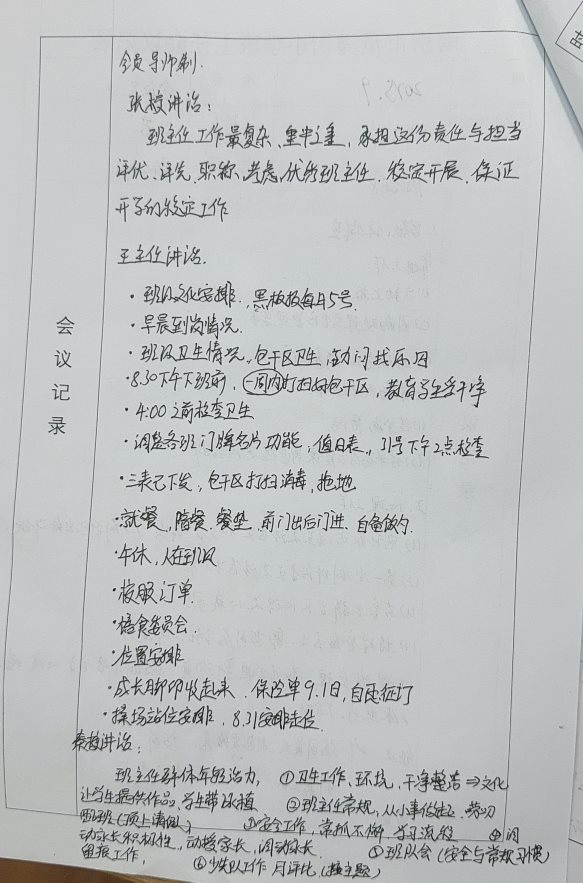 会议记录
全员导师制.
张校讲话：
班主任工作最复杂、重中之重，承担这份责任与担当
评优、评先、职称、考虑优秀班主任. 稳定开展、保证
开学的稳定工作
王主任讲话.
· 班级文化安排. 黑板报每月5号.
· 早晨到岗情况.
· 班级卫生情况、包干区卫生，勤问找原因
· 8.30下午下班前，一周内打扫好包干区，教育学生要干净
· 4:00之前检查卫生
· 调整各班门牌名片功能，值日表、31号下午2点检查
· 三表已下发，包干区打扫消毒，拖地
· 就餐、陪餐、餐垫、前门出后门进. 自备饭勺.
· 午休，人在班级
· 校服订单.
· 膳食委员会.
· 位置安排
· 成长脚印收起来. 保险单9.1日，自愿征订
· 操场站位安排. 8.31安排走位.
秦校讲话：
班主任群体年轻活力， ①卫生工作、环境，干净整洁⇒文化
让学生提供作品，学生带绿植 ②班主任常规，从小事做起，劳动
跟班（顶上请假） ③安全工作，常抓不懈 学习流程 ④调
动家长积极性，动援家长，调动家长 ⑤班队会（安全与常规习惯）
工作， ⑥少先队工作 月评比（按主题）